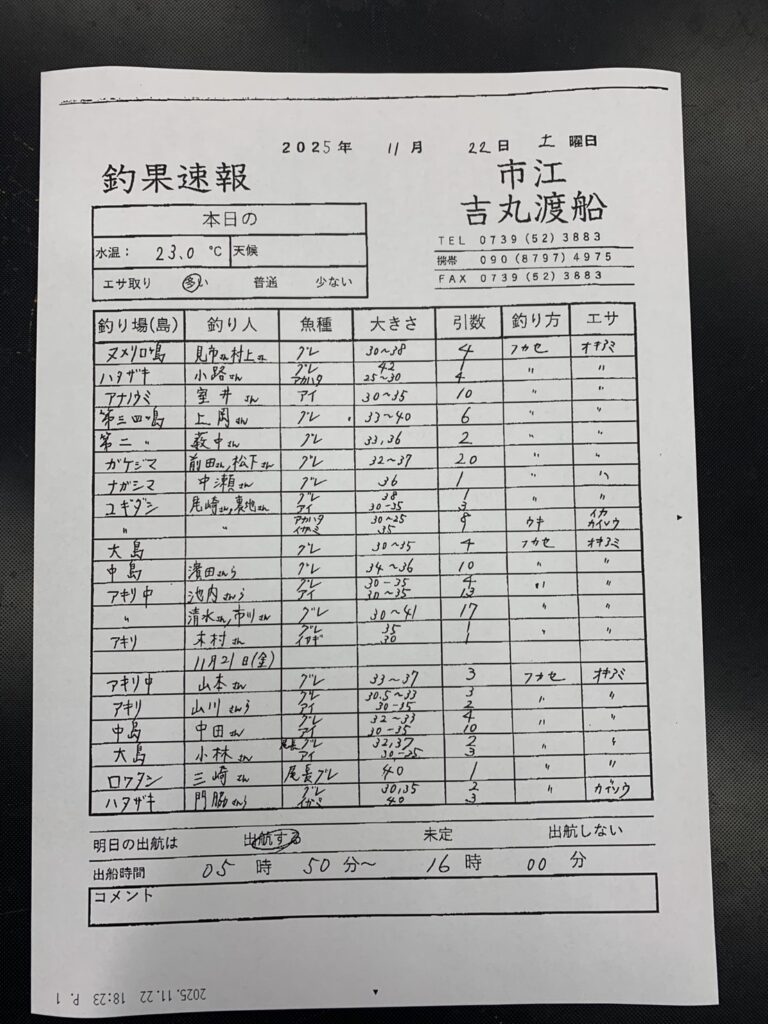 2025年 11月 22日 土 曜日
釣果速報
市江
吉丸渡船
TEL 0739(52)3883
携帯 090(8797)4975
FAX 0739(52)3883
本日の
水温： 23.0 ℃ 天候
エサ取り 多い 普通 少ない
釣り場(島) 釣り人 魚種 大きさ 引数 釣り方 エサ
ヌメリロ島 見市さん村上さん グレ 30〜38 4 フカセ オキアミ
ハタザキ 小路さん グレ 42 1 〃 〃
アカハタ 25〜30 4
アナノウミ 室井さん アイ 30〜35 10 〃 〃
第三四島 上岡さん グレ 33〜40 6 〃 〃
第二 〃 薮中さん グレ 33,36 2 〃 〃
ガケジマ 前田さん,松下さん グレ 32〜37 20 〃 〃
ナガシマ 中瀬さん グレ 36 1 〃 〃
ユギダシ 尾崎さん,裏地さん グレ 38 1 〃 〃
アイ 30-35 3
〃 〃 アカハタ 30〜25 9 ウキ イカ
イガミ 35 カイソウ
大島 グレ 30〜35 4 フカセ オキアミ
中島 濱田さんら グレ 34〜36 10 〃 〃
アキリ中 池内さんら グレ 30-35 4 〃 〃
アイ 30〜35 13
〃 清水さん,市川さん グレ 30〜41 17 〃 〃
アキリ 木村さん グレ 35 1 〃 〃
イサギ 30 1
11月21日(金)
アキリ中 山本さん グレ 33〜37 3 フカセ オキアミ
アキリ 山川さんら グレ 30.5〜33 3 〃 〃
アイ 30-35 2
中島 中田さん グレ 32〜33 4 〃 〃
アイ 30-35 10
大島 小林さん 尾長グレ 32,37 2 〃 〃
アイ 30-35 3
ロクタン 三崎さん 尾長グレ 40 1 〃 〃
ハタザキ 門脇さんら グレ 30,35 2 〃 カイソウ
イガミ 40 3
明日の出航は 出航する 未定 出航しない
出船時間 05 時 50 分〜 16 時 00 分
コメント
2025.11.22 18:23 P. 1